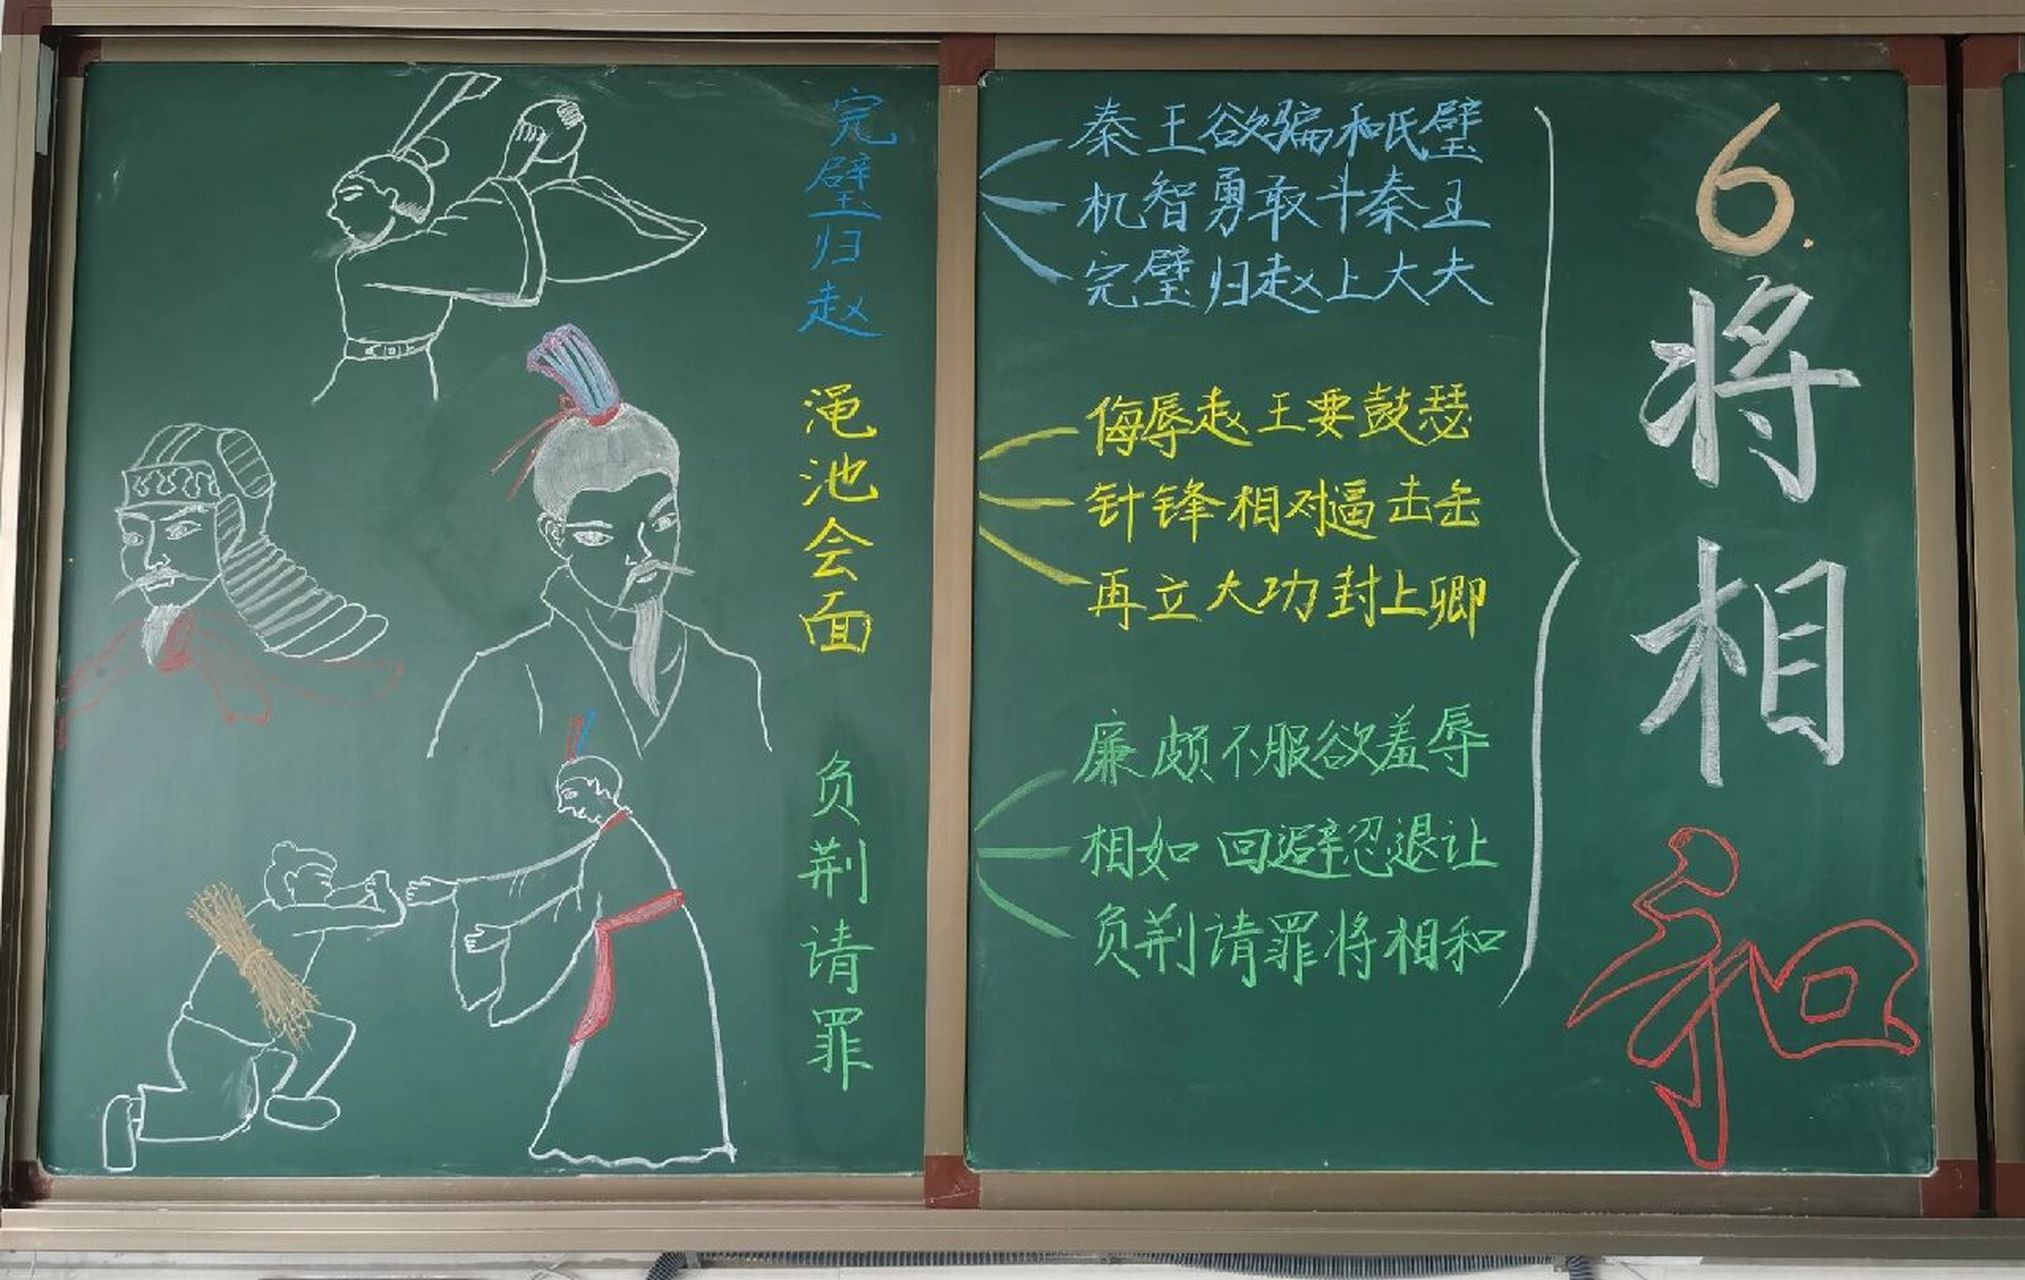 6.将相和
完璧归赵
秦王欲骗和氏璧
机智勇敢斗秦王
完璧归赵上大夫
渑池会面
侮辱赵王要鼓瑟
针锋相对逼击缶
再立大功封上卿
负荆请罪
廉颇不服欲羞辱
相如回避忍退让
负荆请罪将相和